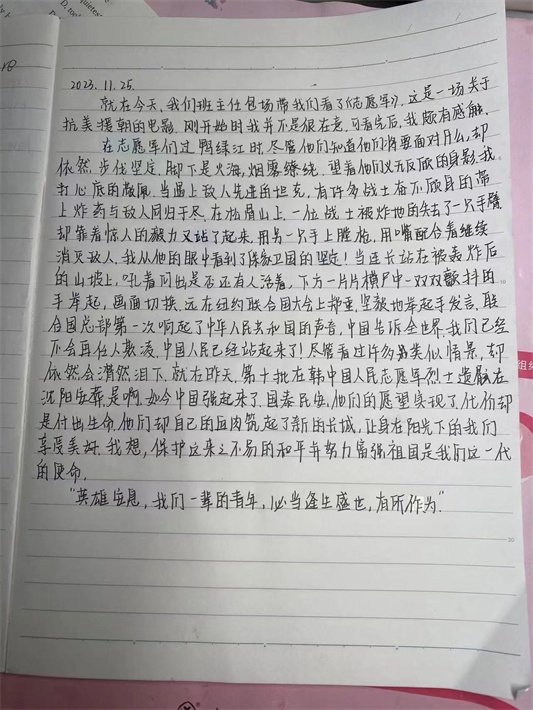 D. too
quieter
2023.11.25.
就在今天，我们班主任包场带我们看了《志愿军》，这是一场关于
抗美援朝的电影。刚开始时我并不是很在意，可看完后，我颇有感触。
在志愿军们过鸭绿江时，尽管他们知道他们将要面对什么，却
依然步伐坚定，脚下是火海，烟雾缭绕，望着他们义无反顾的身影，我
打心底的敬佩。当遇上敌人先进的坦克，有许多战士奋不顾身的带
上炸药与敌人同归于尽，在松骨山上，一位战士被炸地的失去了一只手臂
却靠着惊人的毅力又站了起来，用另一只手上膛枪，用嘴配合着继续
消灭敌人，我从他的眼中看到了保家卫国的坚定！当连长站在被轰炸后
的山坡上，吼着问出是否还有人活着，下方一片片横尸中一双双颤抖的
手举起，画面切换，远在纽约联合国大会上郑重，坚毅地举起手发言，联
合国总部第一次响起了中华人民共和国的声音，中国告诉全世界，我们已经
不会再任人欺凌，中国人民已经站起来了！尽管看过许多类似情景，却
依然会潸然泪下。就在昨天，第十批在韩中国人民志愿军烈士遗骸在
沈阳安葬，是啊，如今中国强起来了，国泰民安，他们的愿望实现了，代价却
是付出生命，他们却自己的血肉筑起了新的长城，让身在阳光下的我们
享受美好。我想，保护这来之不易的和平并努力富强祖国是我们这一代
的使命。
“英雄安息，我们一辈的青年，必当逢生盛世，有所作为。”
组